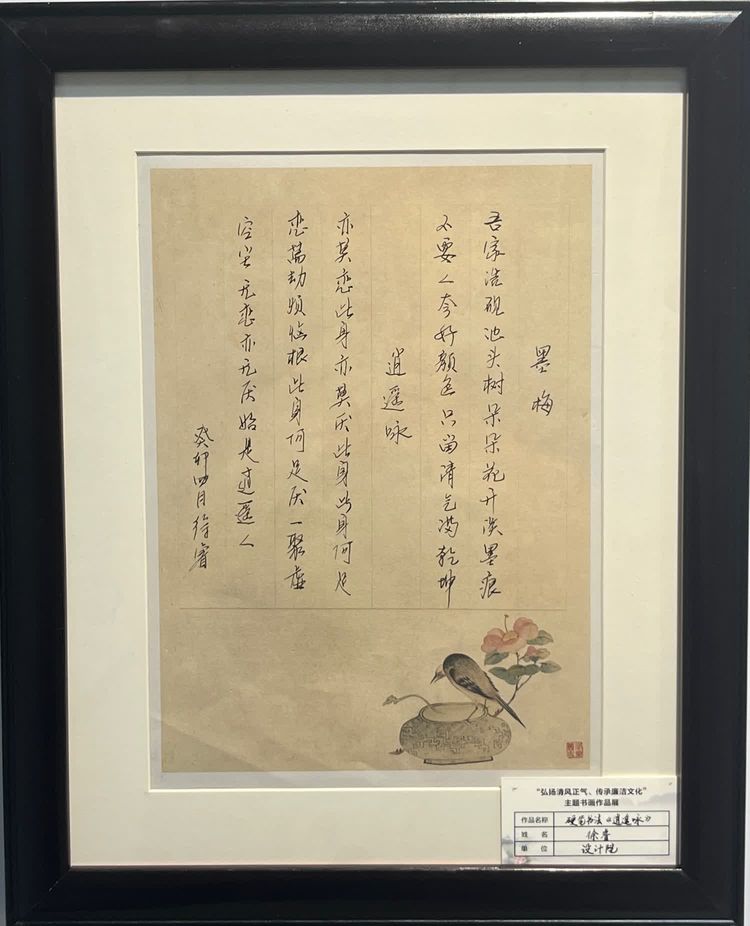 墨梅
吾家洗砚池头树朵朵花开淡墨痕
不要人夸好颜色只留清气满乾坤
逍遥咏
亦莫恋此身亦莫厌此身此身何足
恋萬劫烦恼根此身何足厌一聚虚
空尘无恋亦无厌始是逍遥人
癸卯四月徐睿
“弘扬清风正气、传承廉洁文化”
主题书画作品展
作品名称 硬笔书法《逍遥咏》
姓 名 徐睿
单 位 设计院